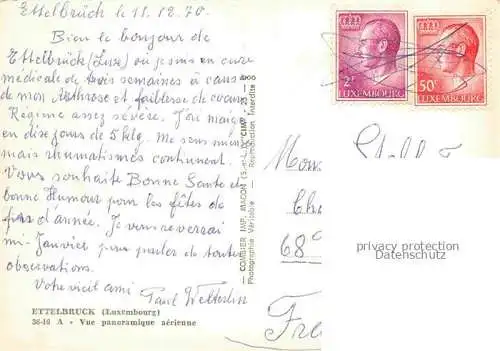 Ettelbrück le 11.12.70
Bien le bonjour de
Ettelbrück (Lux) où je suis en cure
médicale de trois semaines à cause
de mon Arthrose et faiblesse de coeur
Régime assez sévère. J'ai maigri
en dix jours de 5 klg. Me sens mieux
mais rhumatismes continuent.
Vous souhaite Bonne Santé et
bonne Humour pour les fêtes de
fin d'année. Je vous reverrai
mi-Janvier pour parler de toutes
observations.
Votre vieil ami Paul
ETTELBRUCK (Luxembourg)
36-16 A - Vue panoramique aérienne
COMBIER IMP. MACON (S.-et-L.) "CIM"
Photographie Véritable - Reproduction Interdite
2F
LUXEMBOURG
50c
LUXEMBOURG
Mon
Ch
68
Fr
privacy protection
Datenschutz